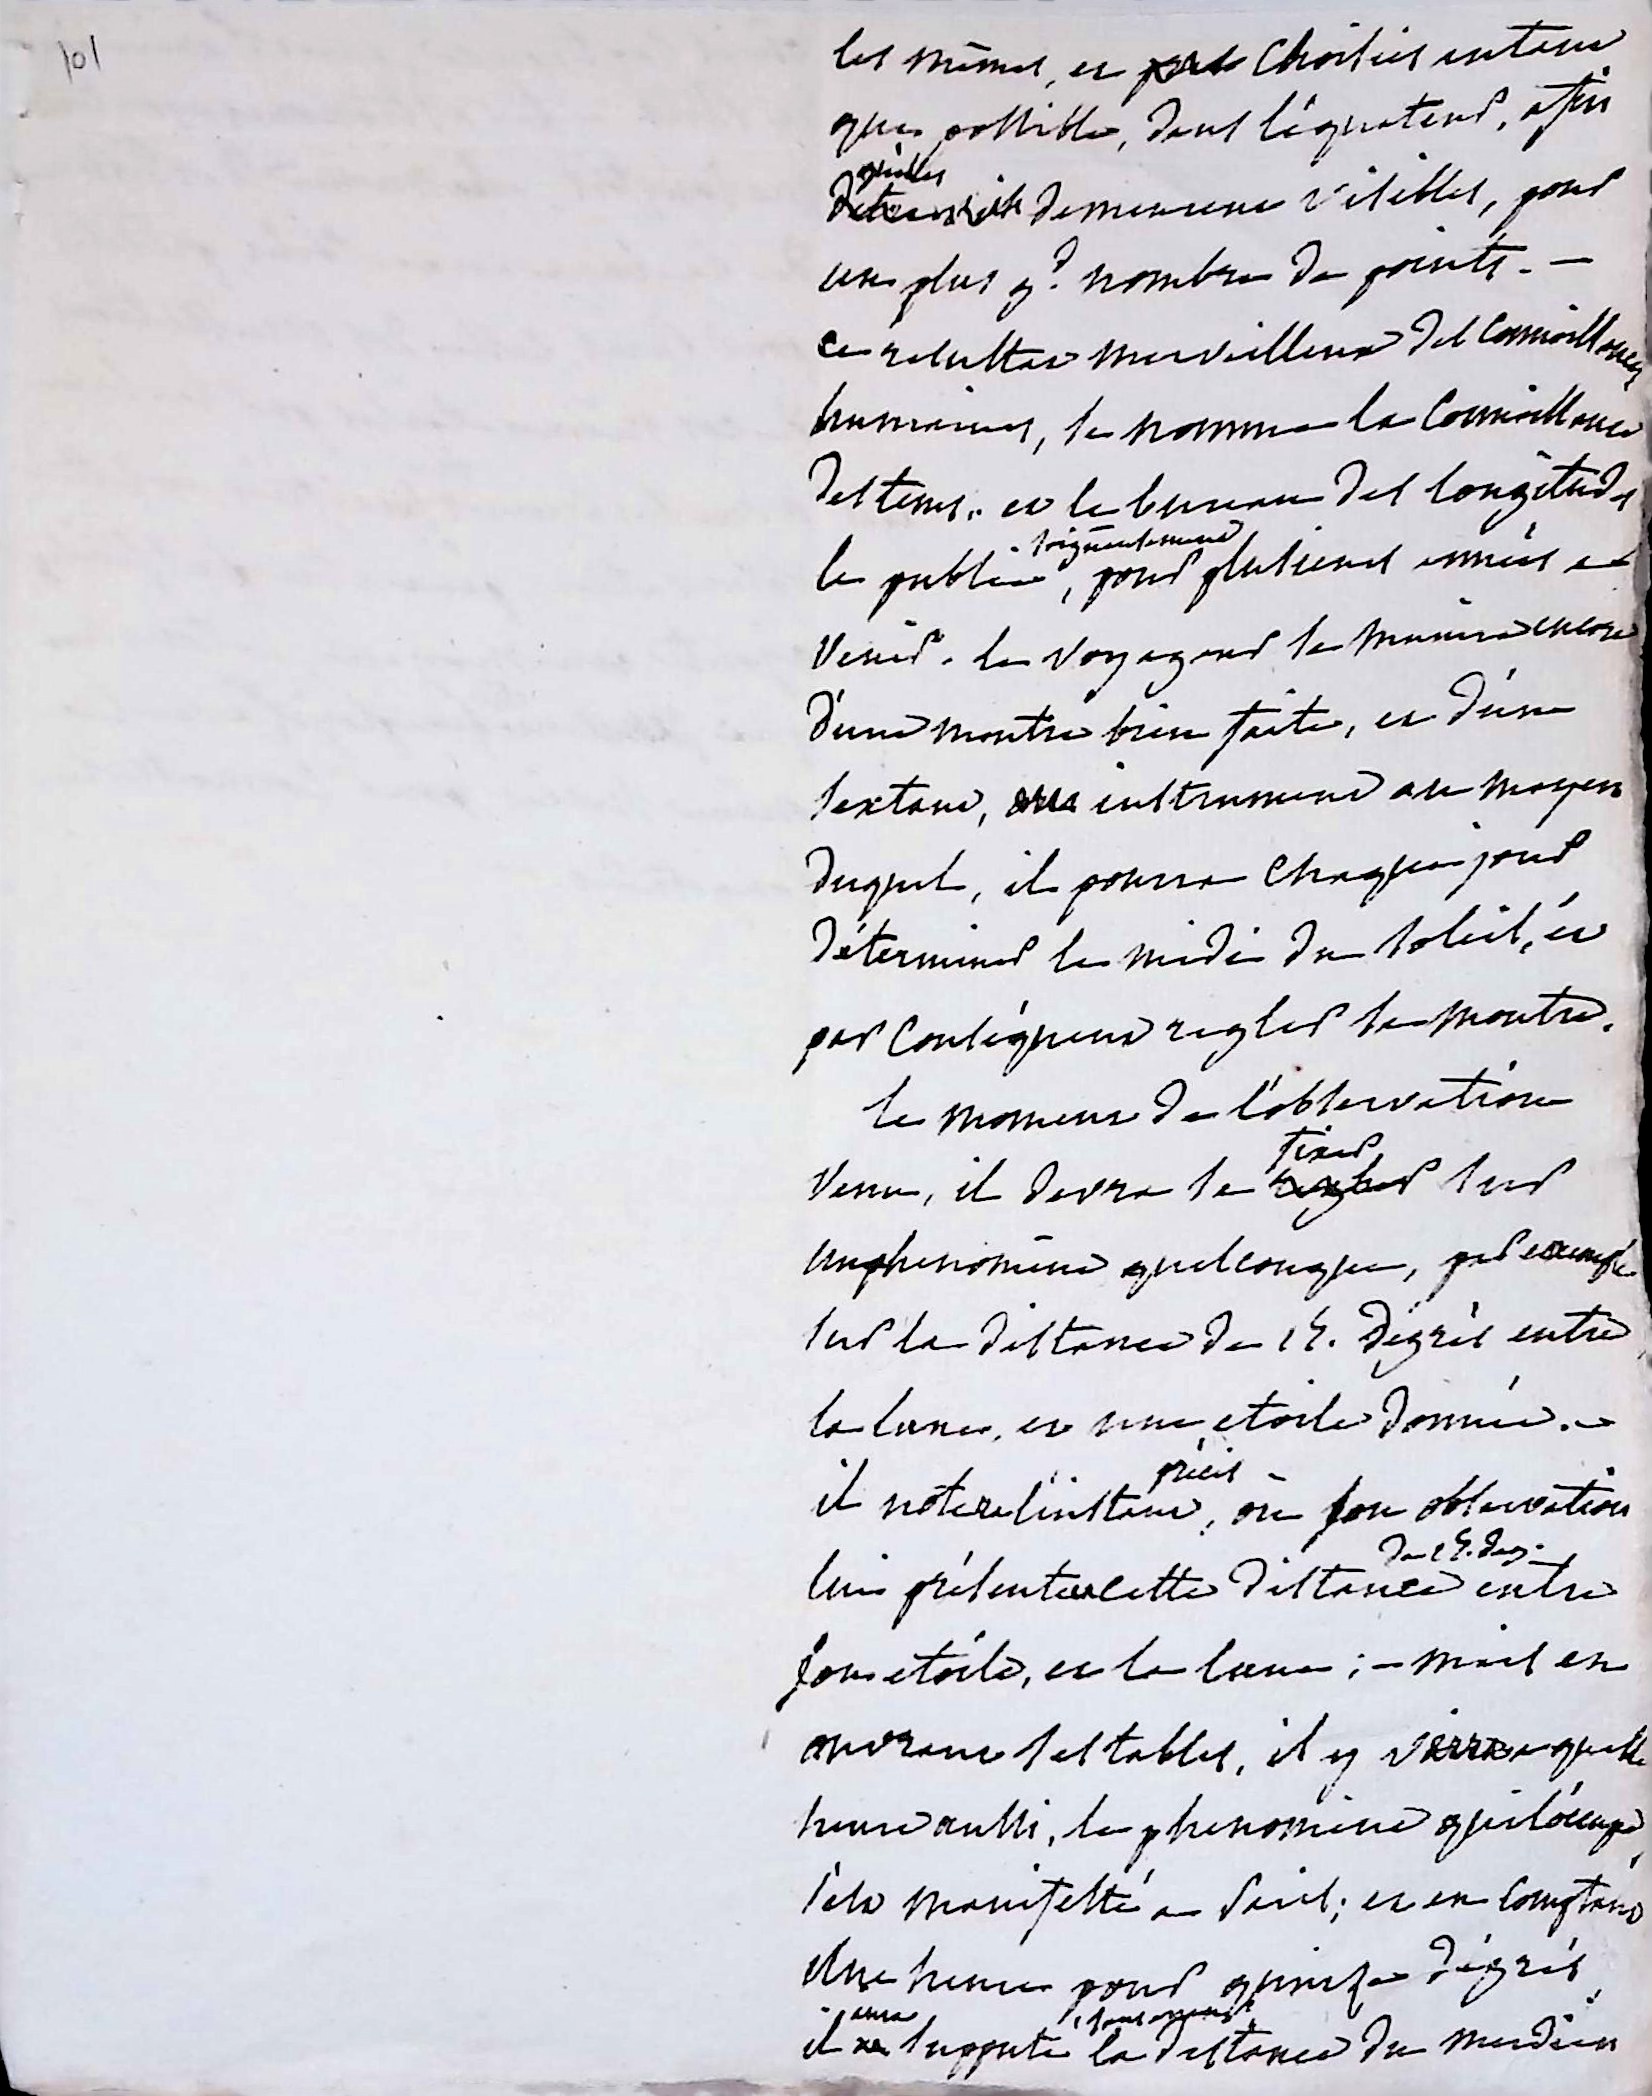 101
les mêmes, et choisies autant
que possible, dans l'équateur, afin
qu'elles demeurent visibles, pour
un plus gd. nombre de points. —
ce resultat merveilleux des connoissances
humaines, se nomme la Connoissance
des tems. et le bureau des longitudes
soigneusement
le publie, pour plusieurs années à
venir. le voyageur se munira encore
d'une montre bien faite, et d'un
sextant, instrument au moyen
duquel, il pourra chaque jour
déterminer le midi du soleil, et
par conséquent regler sa montre.
le moment de l'observation
fixer
venu, il devra se regler sur
un phenomène quelconque, par exemple
sur la distance de 15. dégrés entre
la lune, et une etoile donnée. —
précis
il notera l'instant, où son observation
de 15. deg.
lui présentera cette distance entre
son etoile, et la lune; — mais en
ouvrant ses tables, il y verra à quelle
heure aussi, le phenomène qui l'occupe,
s'est manifesté à Paris; et en comptant
une heure pour quinze dégrés,
aura
il supputé la distance du meridien